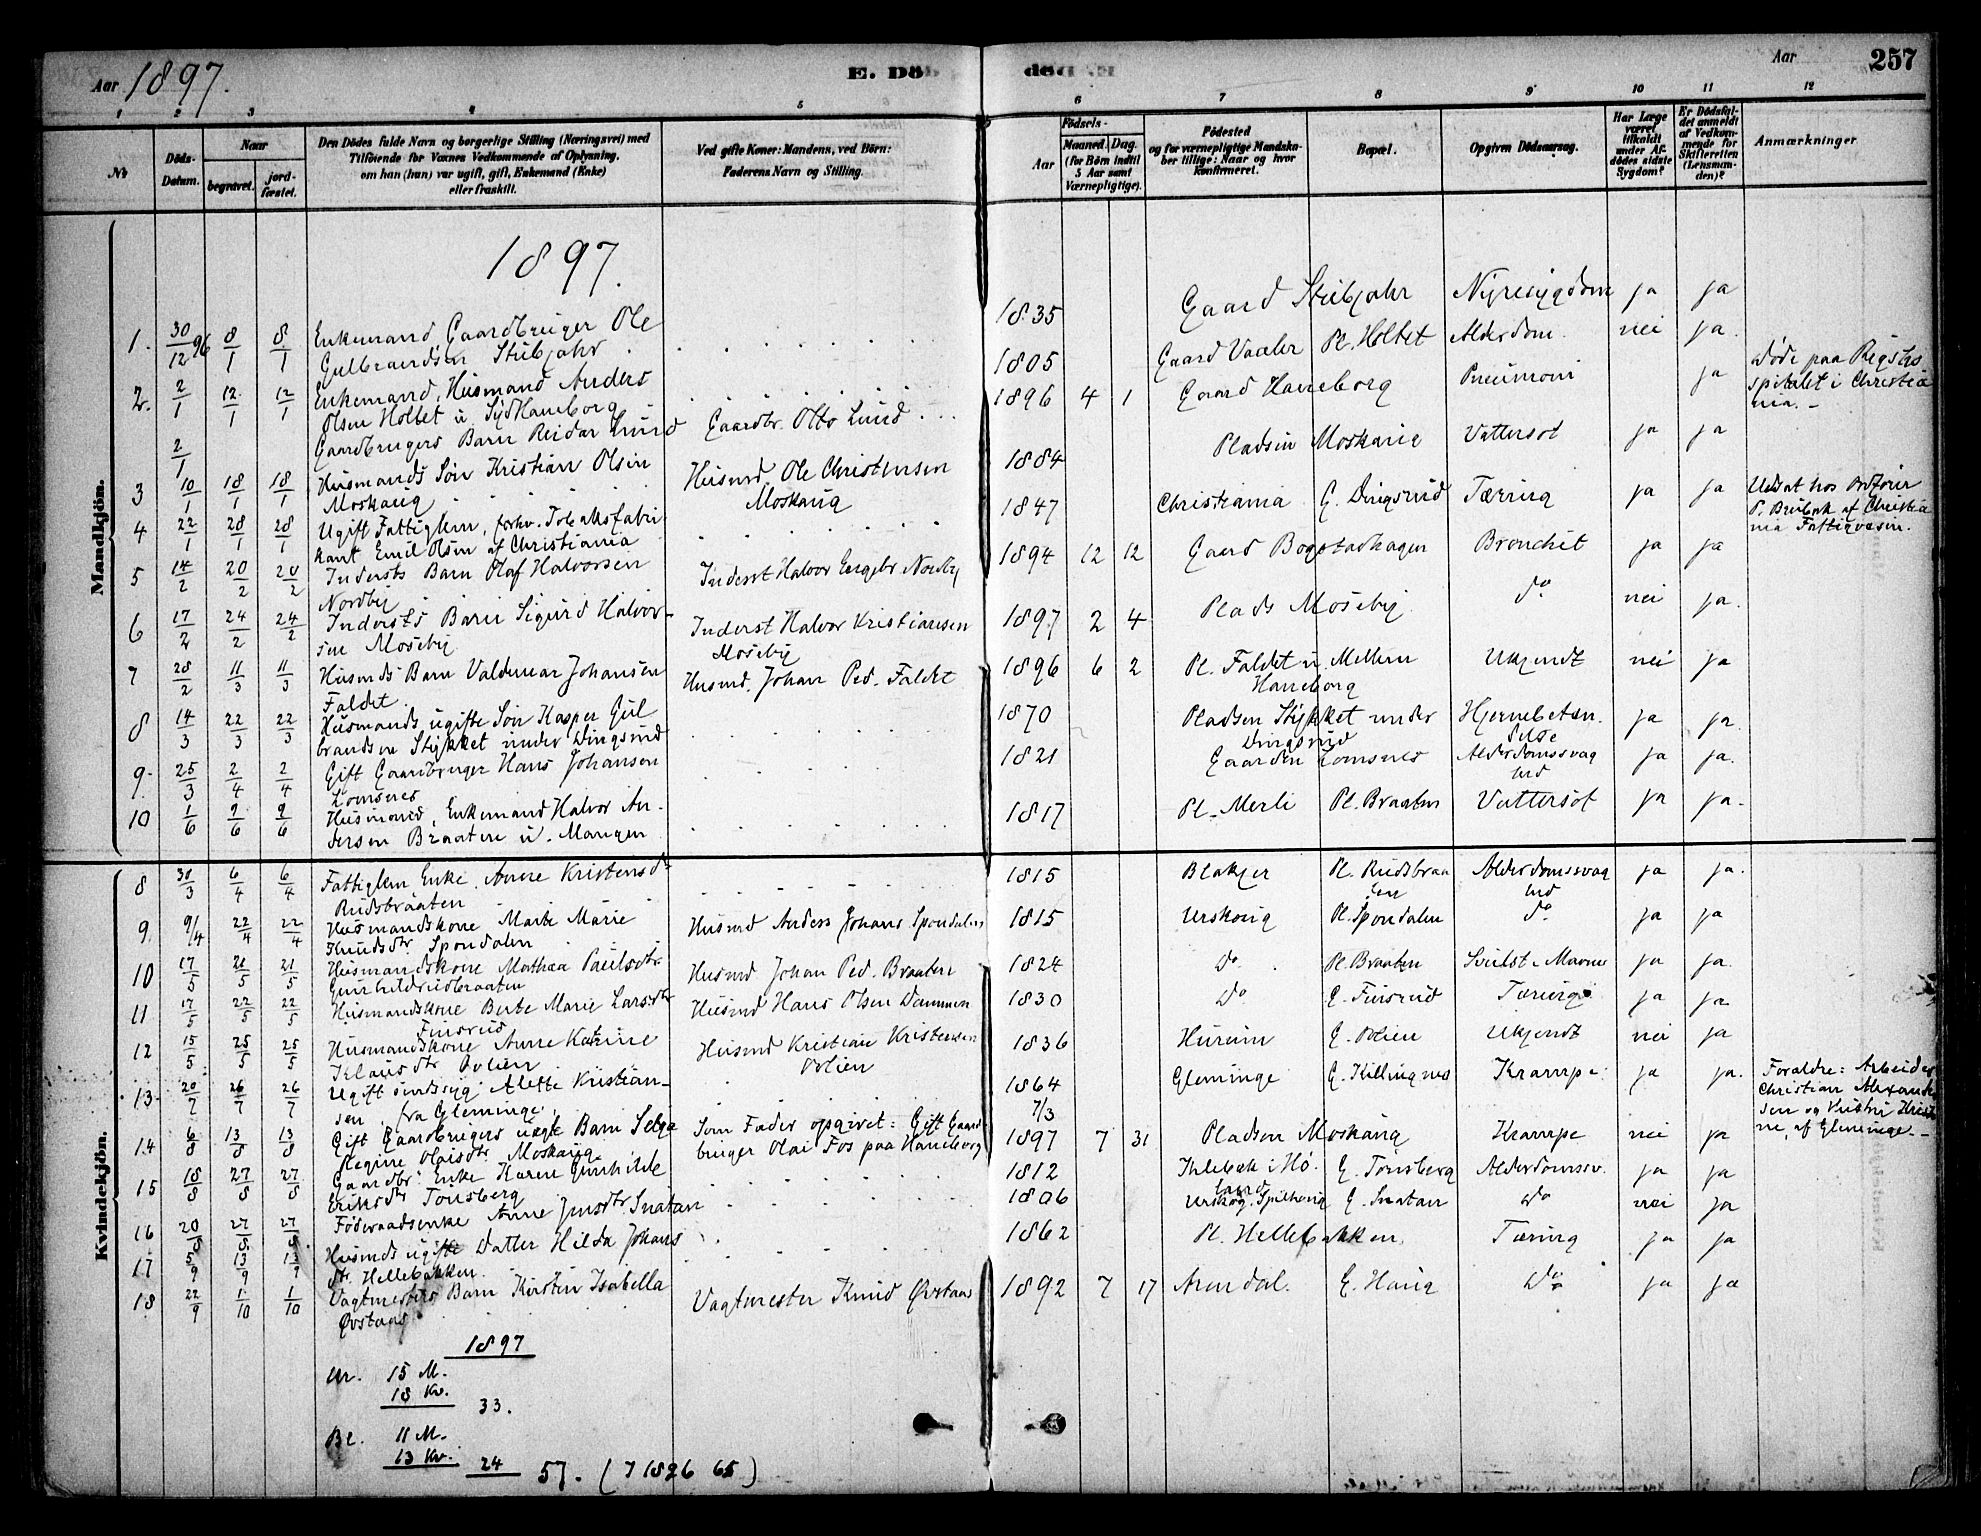 Aar 1897.
E. Døde
Aar
257
1 2 3 4 5 6 7 8 9 10 11 12
Nr.
Døds-Datum.
Naar
begravet.
jord-fæstet.
Den Dødes fulde Navn og borgerlige Stilling (Næringsvei) med
Tilføiende for Voxnes Vedkommende af Oplysning,
om han (hun) var ugift, gift, Enkemand (Enke)
eller fraskilt.
Ved gifte Koner: Mandens, ved Børn:
Faderens Navn og Stilling.
Fødsels-
Aar
Maaned. Dag.
(for Børn indtil
5 Aar samt
Værnepligtige).
Fødested
og for værnepligtige Mandska-
ber tillige: Naar og hvor
konfirmeret.
Bopæl.
Opgiven Dødsaarsag.
Har Læge
været
tilkaldt
under Af-
dødes sidste
Sygdom?
Er Dødsfal-
det anmeldt
af Vedkom-
mende for
Skifteretten
(Lensman-
den)?
Anmærkninger
Mandkjøn.
1897.
1. 30/12 96 8/1 8/1 Enkemand, Gaardbruger Ole 1835 Gaard Stubjahr Nyresygdom ja ja
Gulbrandsen Stubjahr
2. 2/1 12/1 12/1 Enkemand, Husmand Anders 1805 Gaard Vaaler Pl. Holtet Alderdom. nei ja.
Olsen Holtet u. SydHaneborg
2/1 Gaardbrugers Barn Reidar Lund Gaardbr. Otto Lund 1896 4 1 Gaard Haneborg Pneumoni ja Døde paa Rigsho
spitalet i Christia
nia. –
3 10/1 18/1 18/1 Husmands Søn Kristian Olsen Husmd. Ole Christensen 1884 Pladsen Moskaug Vattersot ja ja
Moskaug Moskaug
4 22/1 28/1 28/1 Ugift Fattiglem, forhv. Tobaksfabri 1847 Christiania G. Dingsrud Tæring ja ja Udsat hos Ordfører
kant Emil Olsen af Christiania P. Breibæk af Christia
nia Fattigvæsen.
5 14/2 20/2 20/2 Indersts Barn Olaf Halvorsen Inderst Halvor Engebr. Nordby 1894 12 12 Gaard Bogstadhagen Bronchit ja ja
Nordby
6 17/2 24/2 24/2 Indersts Barn Sigurd Halvor- Inderst Halvor Kristiansen 1897 2 4 Plads Moseby do nei ja.
sen Moseby Moseby
7 28/2 11/3 11/3 Husmds Barn Valdemar Johansen Husmd. Johan Ped. Faldet 1896 6 2 Pl. Faldet u. Mellem Ukjendt nei ja
Faldet Haneborg
8 14/3 22/3 22/3 Husmands ugifte Søn Kasper Gul 1870 Pladsen Stykket under Hjernebetæn. ja ja.
brandsen Stykket under Dingsrud Dingsrud delse
9. 25/3 2/4 2/4 Gift Gaardbruger Hans Johansen 1821 Gaarden Lomsnes Alderdomssvag ja ja.
Lomsnes hed
10 1/6 9/6 9/6 Husmand, Enkemand Halvor An- 1817 Pl. Merli Pl. Braaten Vattersot ja ja.
dersen Braaten u. Mangen
Kvindekjøn.
8 30/3 6/4 6/4 Fattiglem Enke Anne Kristensdr 1815 Blakjer Pl. Rudsbraa Alderdomssvag ja ja.
Rudsbraaten ten hed
9. 9/4 22/4 22/4 Husmandskone Marte Marie Husmd Anders Johans. Spondalen 1815 Urskoug Pl. Spondalen do ja ja
Knudsdtr Spondalen
10 17/5 21/5 21/5 Husmandskone Mathea Paulsdtr Husmd Johan Ped. Braaten 1824 Do Pl. Braaten Svulst i Maven ja ja.
Gunhildrudbraaten
11 17/5 22/5 22/5 Husmandskone Berte Marie Larsdtr Husmd Hans Olsen Dammen 1830 Do G. Finsrud Tæring ja ja
Finsrud
12 15/5 25/5 25/5 Husmandskone Anne Katrine Husmd Kristian Kristensen 1836 Hurum G. Ovlien Ukjendt nei ja
Klausdtr Ovlien Ovlien
13. 20/7 26/7 26/7 Ugift sindssyg Alette Kristian- 1864 Glemminge G. Killingmo Krampe ja ja. Forældre: Arbeider
sen fra Glemminge. 7/3 Christian Alexand
sen og Hustru Kristi
ne, af Glemminge. –
14. 6/8 13/8 13/8 Gift Gaardbrugers uægte Barn Selga Som Fader opgivet: Gift Gaard 1897 7 31 Pladsen Moskaug Krampe nei ja
Regine Olaisdtr Moskaug bruger Olai Fos paa Haneborg
15 18/8 27/8 27/8 Gaardbr. Enke Karen Gunhilde 1812 i Hø- G. Tønsberg Alderdomssv. ja ja
Eriksdtr Tonsberg land
16 20/8 27/8 27/8 Føderaadsenke Anne Jensdtr Snatan 1806 Urskog. Spilhaug G. Snatan Do nei ja
17 5/9 13/9 13/9 Husmds ugifte Datter Hilda Johans 1862 Pl. Hellebakken Tæring ja ja
dtr. Hellebakken.
18 22/9 1/10 1/10 Vagtmesters Barn Kirstin Isabella Vagtmester Knud Øvstaas 1892 7 17 Arendal. G. Haug Do ja ja
Øvstaas
1897
Ur. 15 M.
18 Kv.
33.
Bl. 11 M.
13 Kv.
24 57. (I 1896 65)